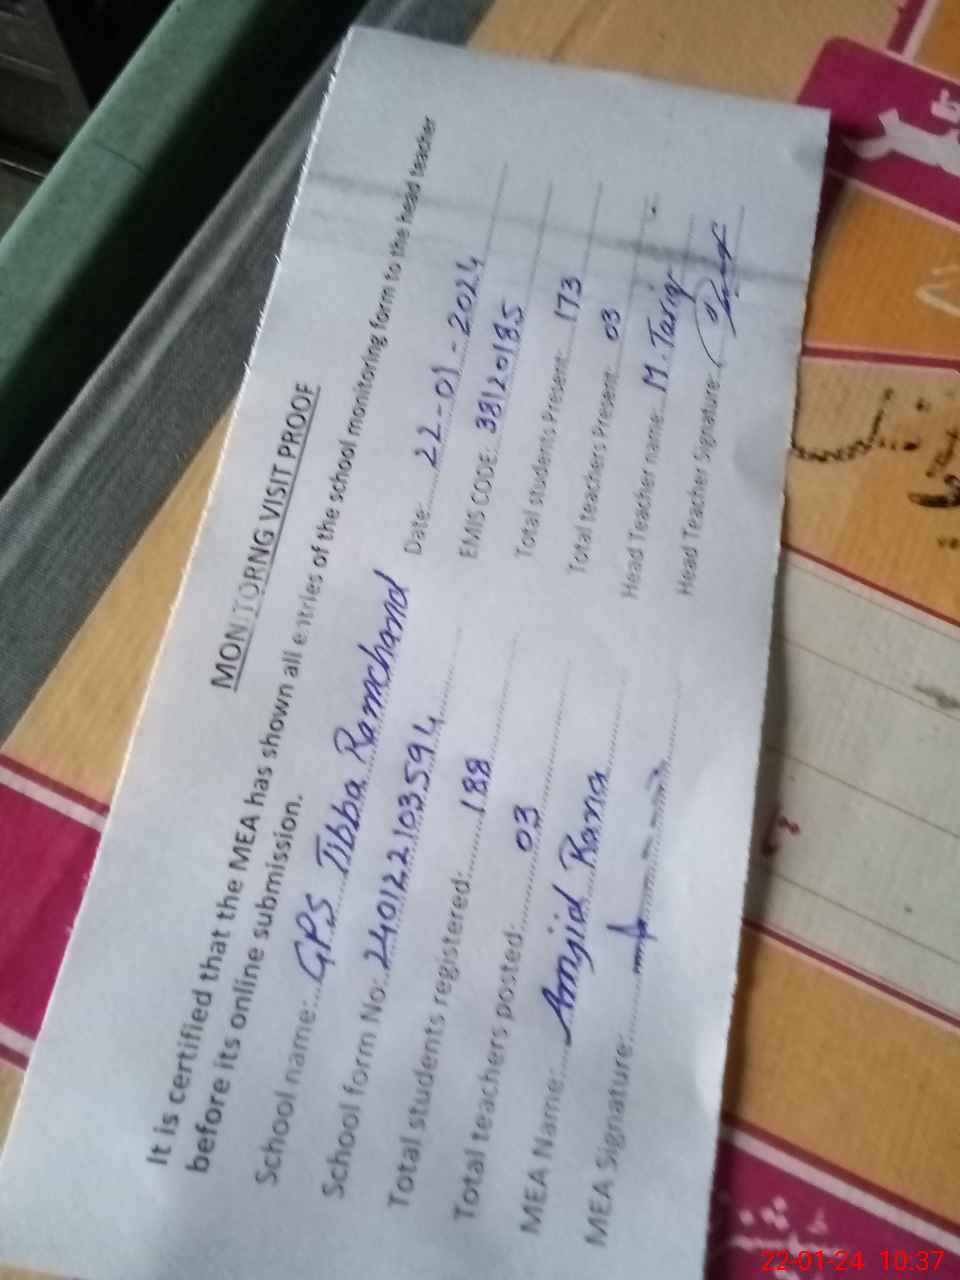 MONITORNG VISIT PROOF
It is certified that the MEA has shown all entries of the school monitoring form to the head teacher
before its online submission.
School name: GPS Tibba Ramchand Date 22-01-2024
School form No: 240122103594 EMIS CODE 38120185
Total students registered: 188 Total students Present: 173
Total teachers posted: 03 Total teachers Present: 03
MEA Name: Amjid Rana Head Teacher name: M. Tariq
MEA Signature: Head Teacher Signature:
22-01-24 10:37